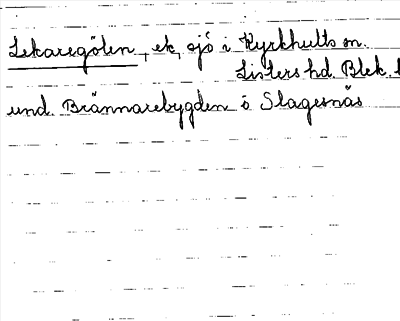 Lekaregölen, ek, sjö i Kyrkhults sn.
Listers hd. Blek. l
und. Brännarebygden ö Slagesnäs